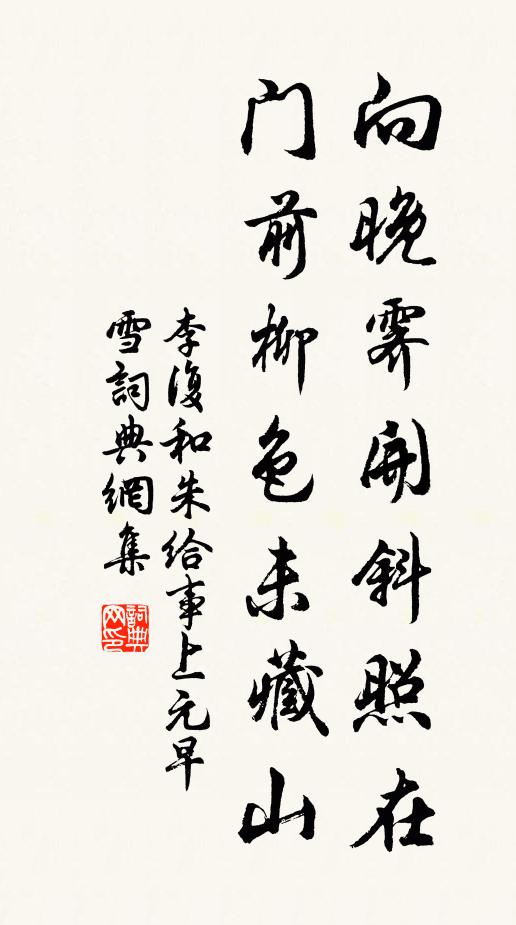 向晚霽開斜照在
門前柳色未藏山
李復和朱給事上元早
雪詞典網集
詞典
网印